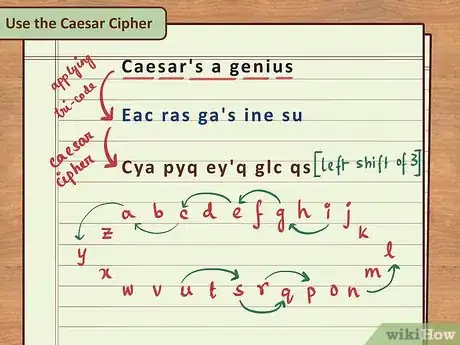 Use the Caesar Cipher
Caesar's a genius
applying
tri-code
Eac ras ga's ine su
caesar
cipher
Cya pyq ey'q glc qs [left shift of 3]
a b c d e f g h i j
z k
y l
x m
w v u t s r q p o n
wikiHow